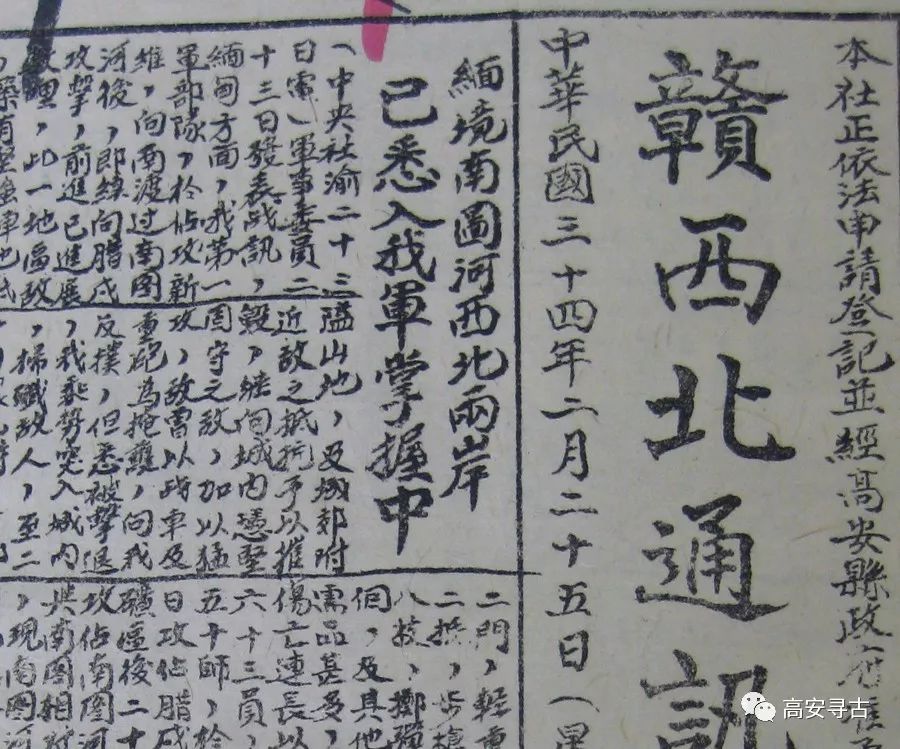 本社正依法申請登記並經高安縣政府准
贛西北通訊
中華民國三十四年二月二十五日（星
緬境南圖河西北兩岸
已悉入我軍掌握中
（中央社渝二十三
日電）軍事委員二
十三日發表战訊，
緬甸方面，我第一
軍部隊，於佔攻新
維，向南渡過南图
河後，即續向腊戌
攻擊，前進已進展
理，此一地區敌
築有堅強陣地
隘山地，及城郊附
近敌之抵抗予以摧
毀，继向城内憑堅
固守之敌，加以猛
攻，敌曾以战車及
重砲为掩護，向我
反撲，但悉被擊退
，我乘勢突入城内
，掃殲敌人，至二
二門，輕重
二挺，步槍
八枝，擲彈
個，及其他
需品甚多，
傷亡連長以
六十三員，
五十師，於
日攻佔腊戌
礦區後二十
攻佔南图河
與南图相对
，現南图河
高安寻古